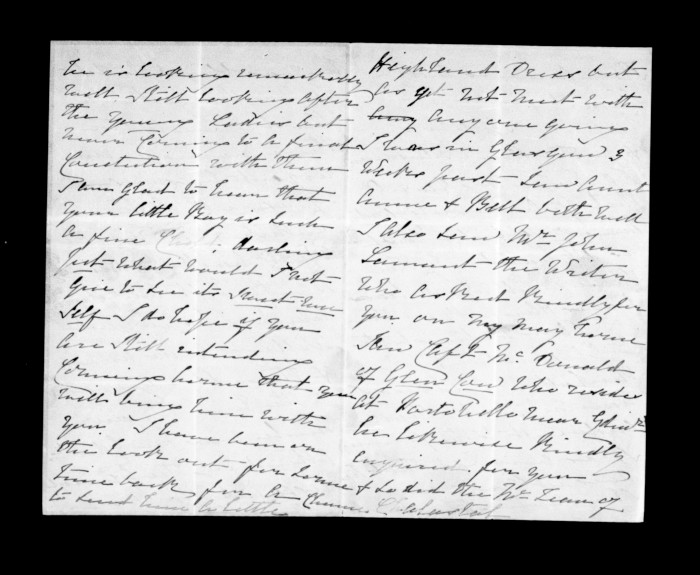 he is looking remarkably
well. Still looking after
the young Ladies but
never Coming to a final
Conclution with them
I am glad to hear that
your little Boy is Such
a fine Child: darling
Just what would I not
give to See its Sweet Wee
Self I do hope if you
are Still intending
Coming home that you
will bring him with
you. I have been on
the look out for Some
time back for a Chance
to Send him a little
Highland Dress but
has yet not meet with
any one going
I was in Glasgow 3
weeks past Saw Aunt
Anne & Bell both well
I also Saw Mr. John
Lamont the Writer
who asked Kindly for
you on my way home
Saw Capt. Mc. Donald
of Glen Coe who resides
at Portobello near Edinr.
he likewise Kindly
enquired for you
& So did the Mc Lean of